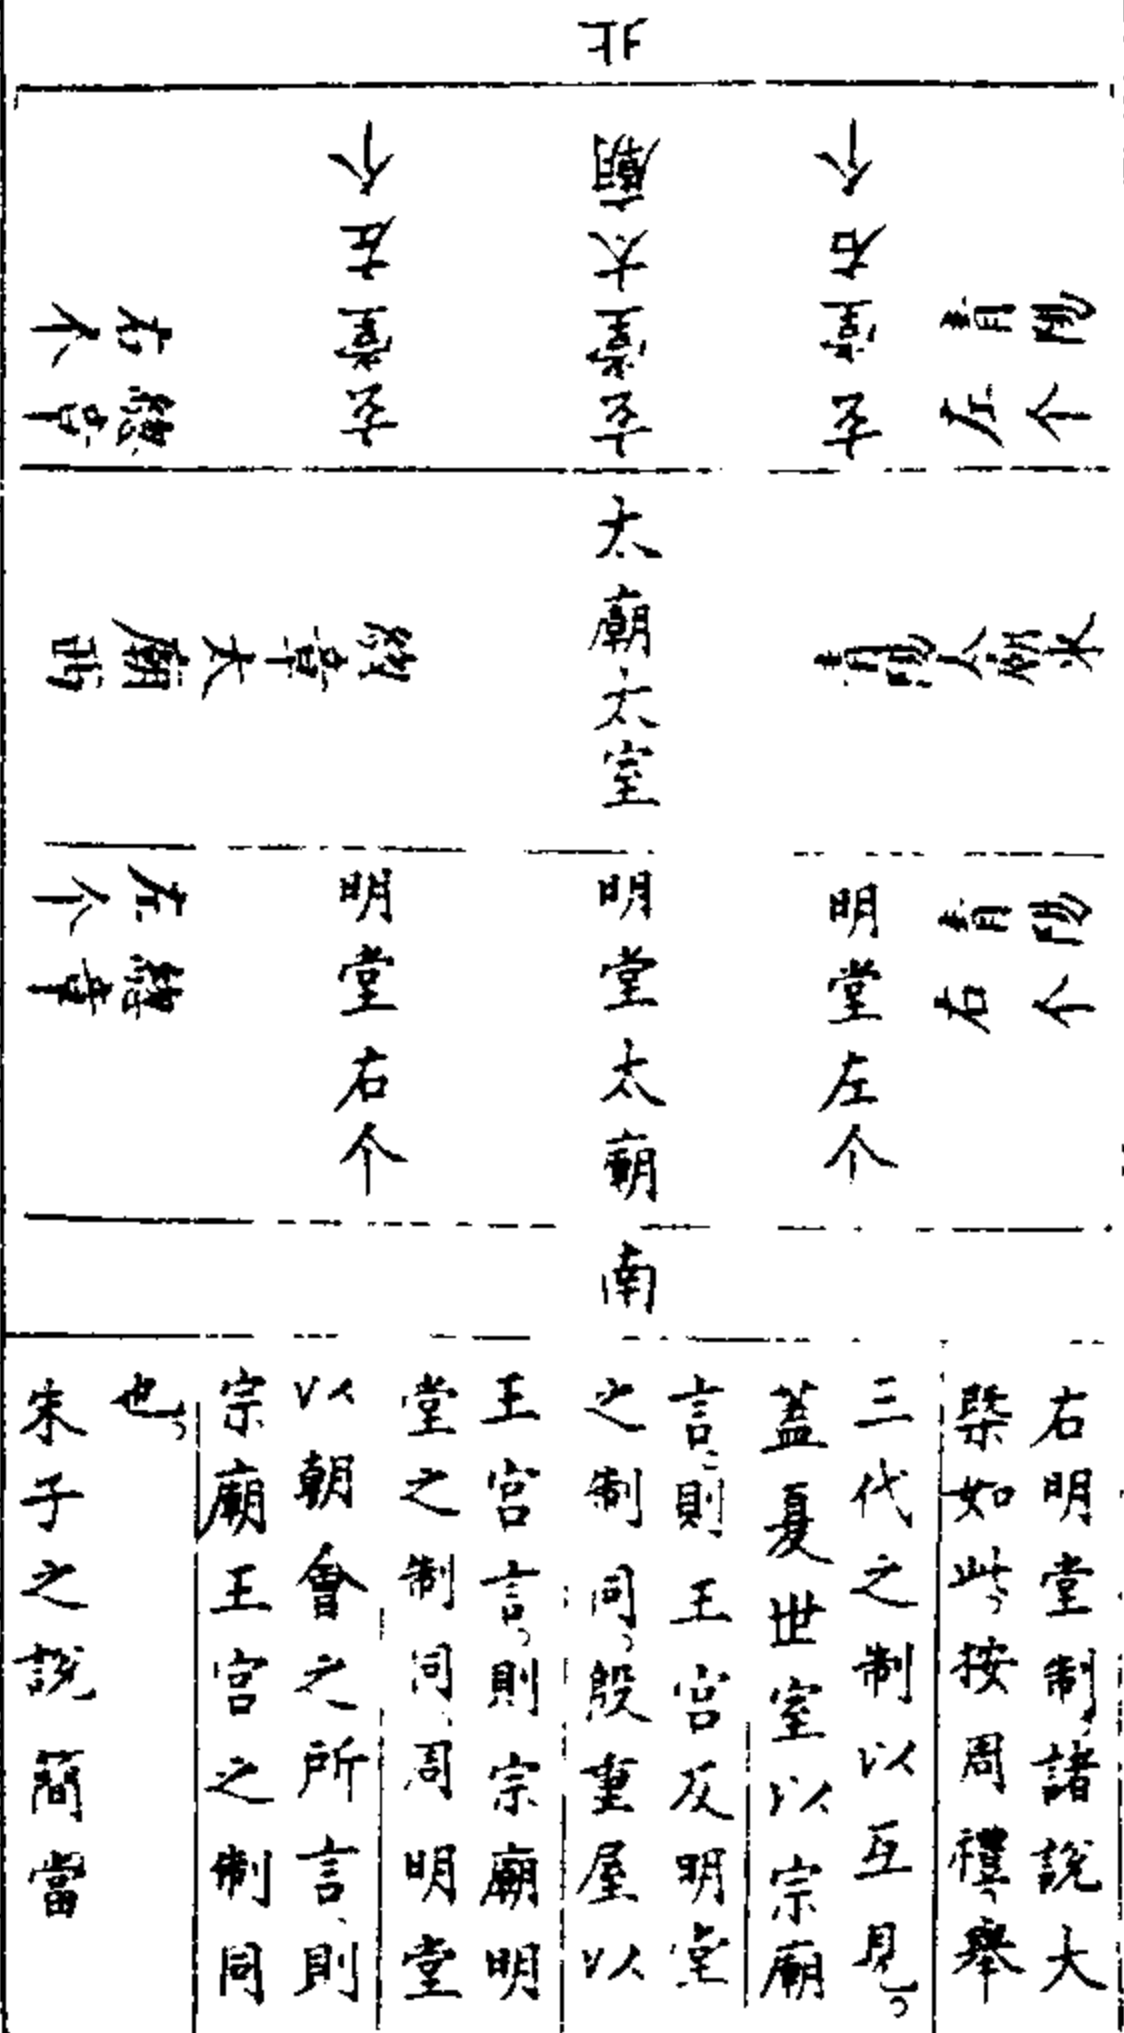 北
玄堂右个
玄堂太廟
玄堂左个
青陽
左个
緫章
右个
太廟太室
青陽太廟東
緫章太廟西
青陽
右个
明堂左个
明堂太廟
明堂右个
緫章
左个
南
右明堂制、諸說大
槩如此、按周禮、舉
三代之制以互見。
蓋夏世室以宗廟
言、則王宮及明堂
之制同、殷重屋以
王宮言、則宗廟明
堂之制同、周明堂
以朝會之所言、則
宗廟王宮之制同
也、
朱子之說簡當